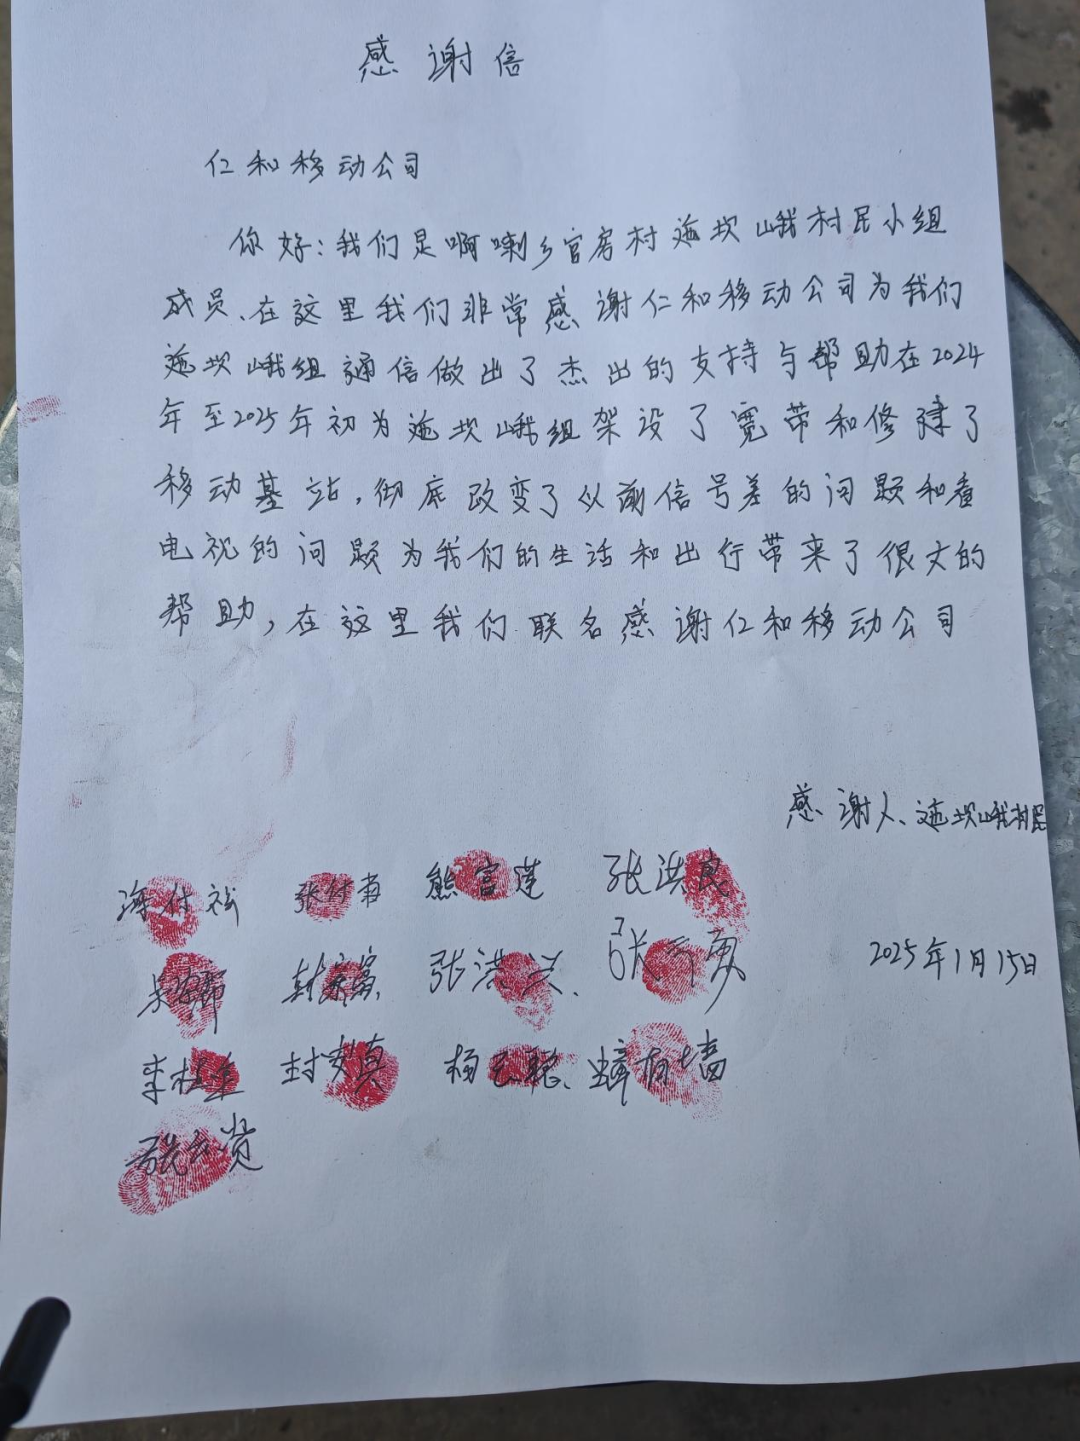 感谢信
仁和移动公司
你好：我们是啊喇乡官房村迤坎峨村民小组
成员、在这里我们非常感谢仁和移动公司为我们
迤坎峨组通信做出了杰出的支持与帮助在2024
年至2025年初为迤坎峨组架设了宽带和修建了
移动基站，彻底改变了以前信号差的问题和看
电视的问题为我们的生活和出行带来了很大的
帮助，在这里我们联名感谢仁和移动公司
感谢人、迤坎峨村民
熊富莲 张洪良
2025年1月15日
张洪兴、
封安真